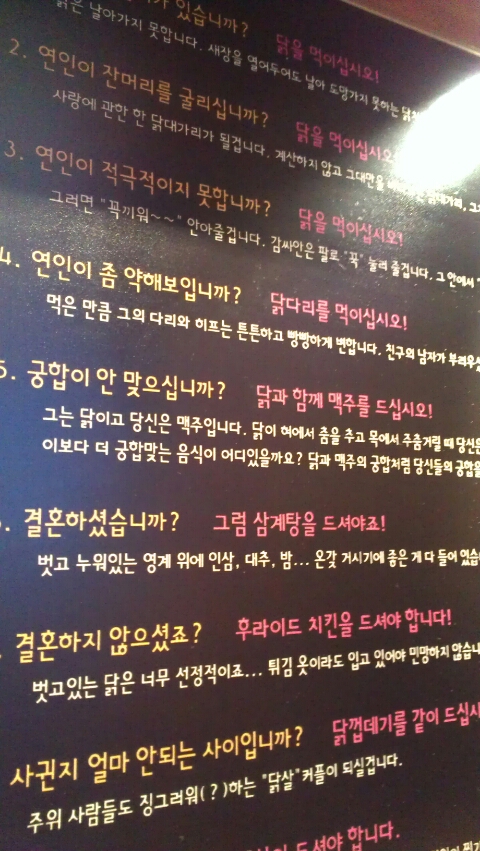 있습니까? 닭을 먹이십시오!
닭은 날아가지 못합니다. 새장을 열어두어도 날아 도망가지 못하는
2. 연인이 잔머리를 굴리십니까? 닭을 먹이십시오
사랑에 관한 한 닭대가리가 될겁니다. 계산하지 않고 그대만을
3. 연인이 적극적이지 못합니까? 닭을 먹이십시오!
그러면 "꼭끼워~~" 안아줄겁니다. 감싸안은 팔로 "꼭" 눌러 줄겁니다. 그 안에서
4. 연인이 좀 약해보입니까? 닭다리를 먹이십시오!
먹은 만큼 그의 다리와 히프는 튼튼하고 빵빵하게 변합니다. 친구의 남자가 부러우
5. 궁합이 안 맞으십니까? 닭과 함께 맥주를 드십시오!
그는 닭이고 당신은 맥주입니다. 닭이 혀에서 춤을 추고 목에서 주춤거릴 때 당신은
이보다 더 궁합맞는 음식이 어디있을까요? 닭과 맥주의 궁합처럼 당신들의 궁합을
. 결혼하셨습니까? 그럼 삼계탕을 드셔야죠!
벗고 누워있는 영계 위에 인삼, 대추, 밤... 온갖 거시기에 좋은 게 다 들어 있습
. 결혼하지 않으셨죠? 후라이드 치킨을 드셔야 합니다!
벗고있는 닭은 너무 선정적이죠... 튀김 옷이라도 입고 있어야 민망하지 않습니
사귄지 얼마 안되는 사이입니까? 닭껍데기를 같이 드십시
주위 사람들도 징그러워(?)하는 "닭살"커플이 되실겁니다.
드셔야 합니다.